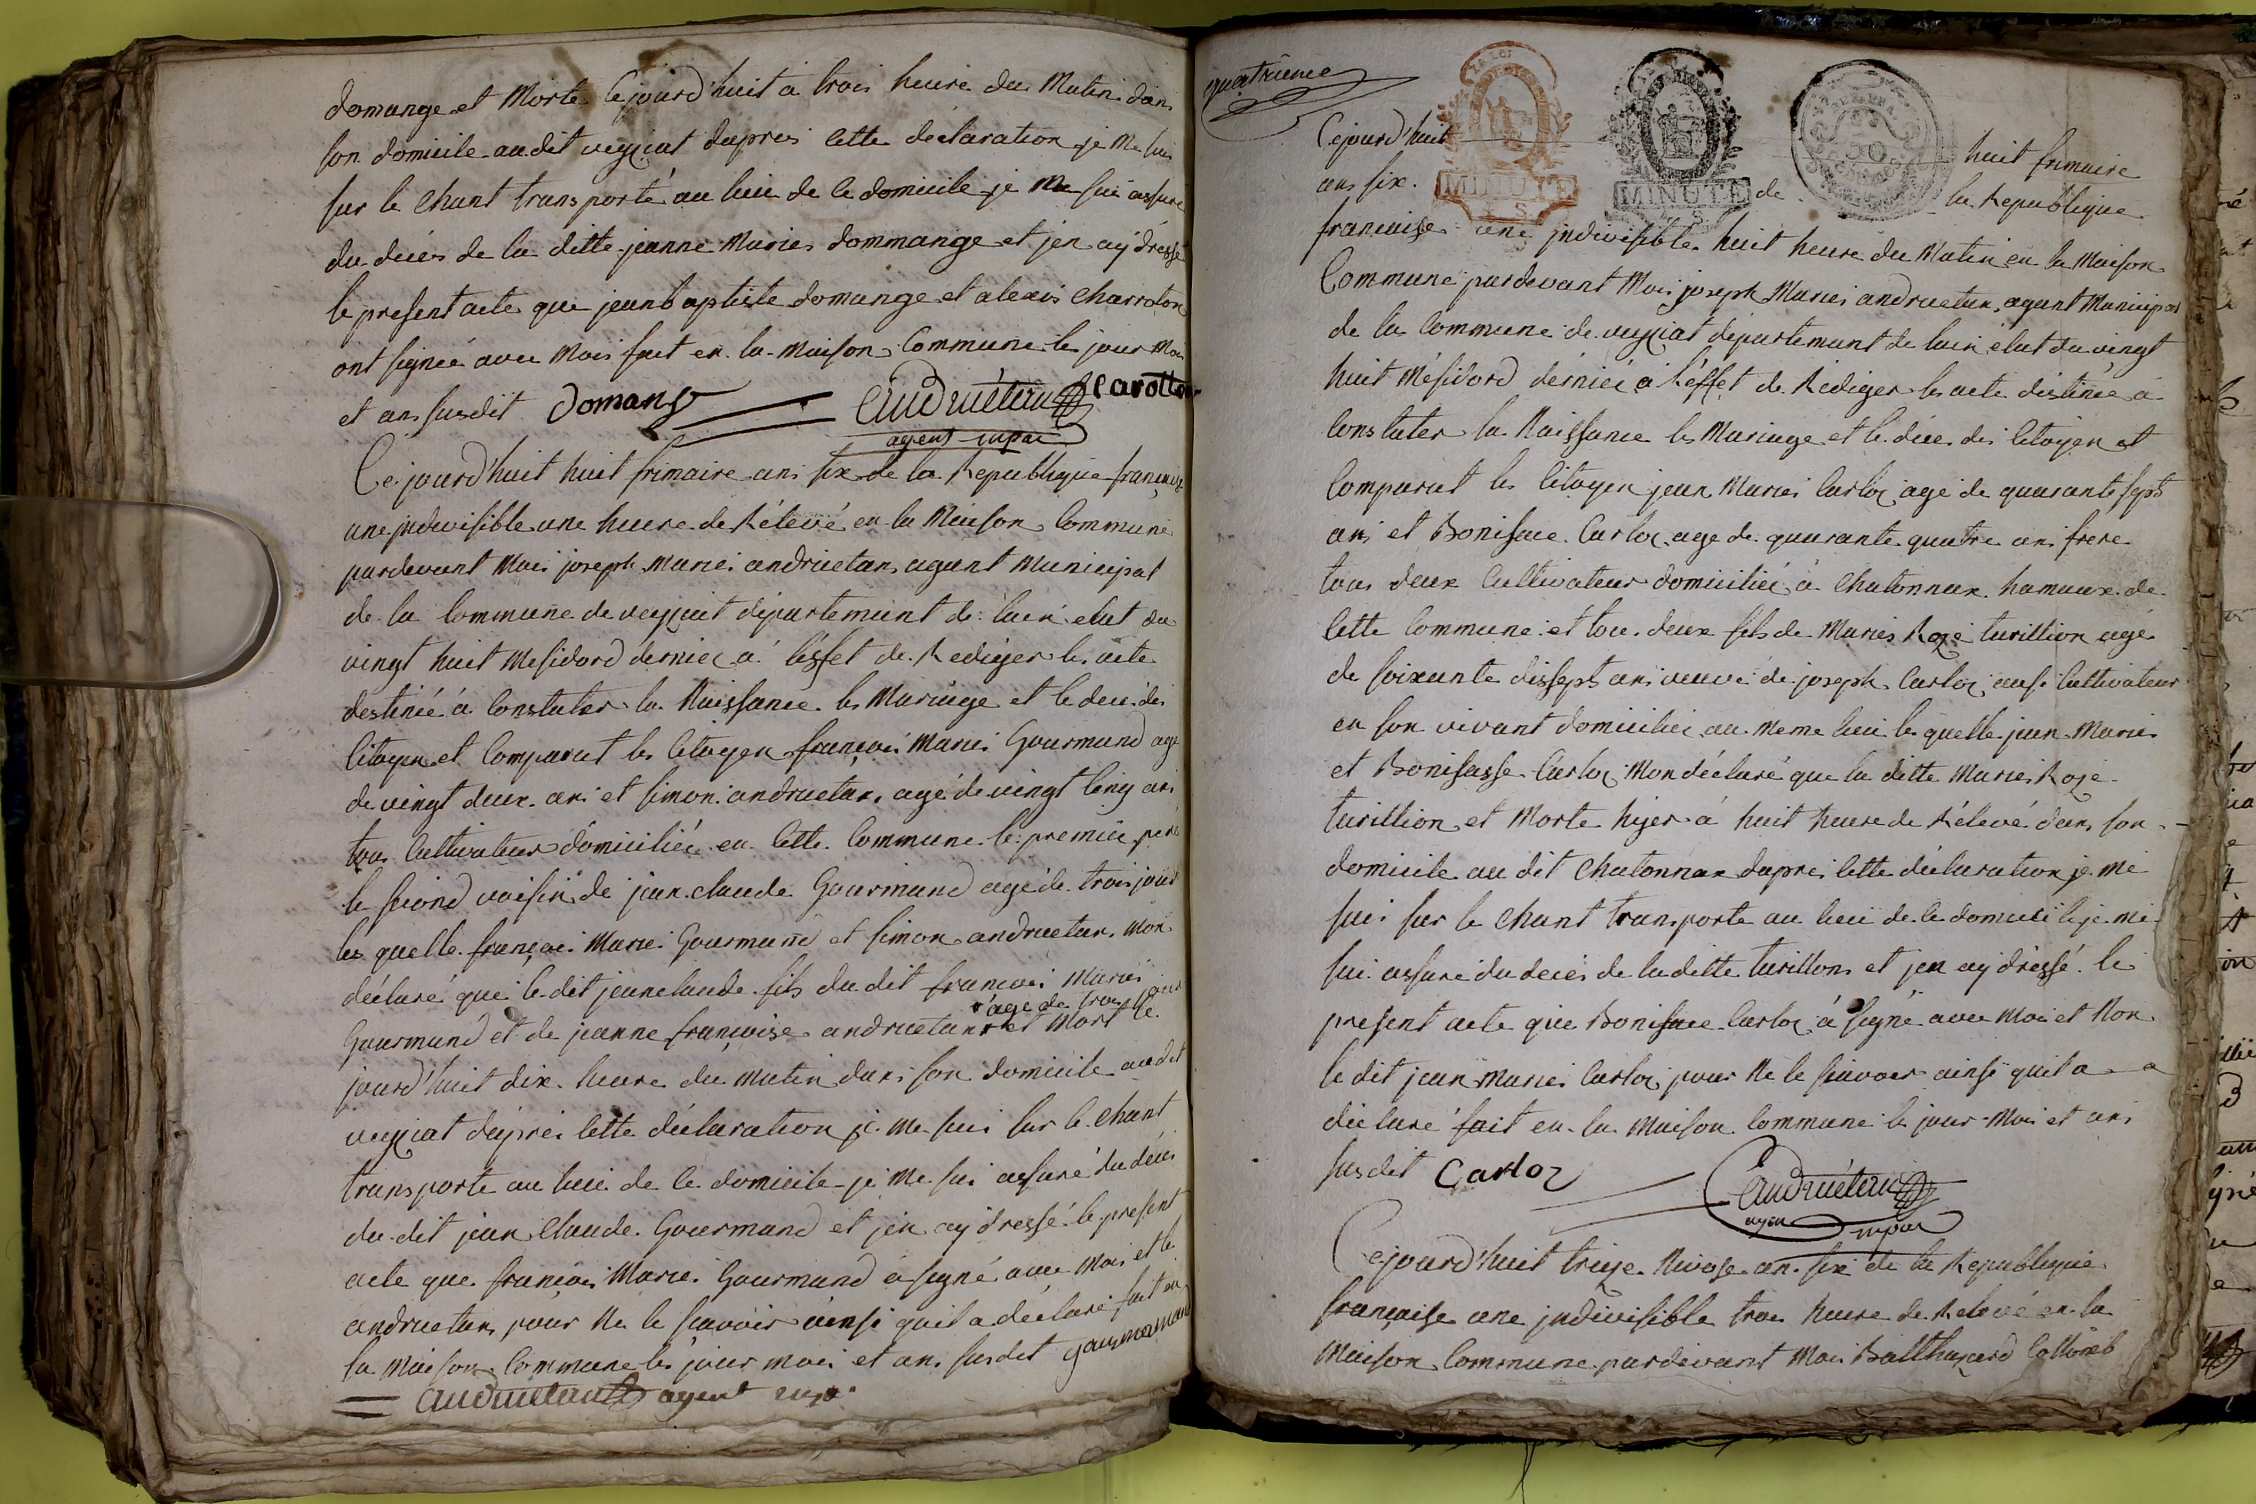 domange et Morte Cejourd'huit a trois heure du Matin dans
son domicile audit veyziat dapres Cette déclaration je Me suis
sur le Chant transporté au lieu de Ce domicile je Me sui assuré
du décés de la ditte jeanne Maries dommange et jen ay dréssé
le present acte que jeanbaptiste domange et alexis Charroton
ont signée avec Moi fait en la Maison Commune les jour Moi
et an susdit Domange Andruétan Carotton
agent mpal
Ce jourd'huit huit frimaire ans six de la Republique française
une jndivisible une heure de Rélevé en la Maison Commune
pardevant Moi joseph Maries andruetan agant Municipal
de la Commune de veyziat département de lain élut du
vingt huit Mesidord dernier a lesfet de Rediger les acte
destinée à Constater la Naissance les Mariage et le déces des
Citoyen et Comparut les Citoyen françois Maries Gourmand age
de vingt deux ans et simon andruetan agé de vingt Cinq ans
tous Cultivateur domiciliée en Cette Commune le premier pere
le second voisin de jean claude Gourmand agé de trois jour
les quelle françoi Maries Gourmand et simon andruetan Mon
déclaré que le dit jeanclaude fils du dit françoi Maries
agé de trois jour
Gourmand et de jeanne françoise andruetan et Mort Ce
jourd'huit dix heure du Matin dans son domicile audit
veyziat dapres Cette déclaration je Me sui sur le Chant
transporte au lieu de Ce domicile je Me sui assuré du décés
du dit jean Claude Gourmand et jen ay dressé le present
acte que françois Maries Gourmand a signé avec Moi et le
andruetan pour Ne le scavoir ainsi quil a déclaré fait en
la Maison Commune les jour mois et an susdit gourmand
Andruetan agent mpal
quatrieme
Cejourd'huit huit frimaire
MINUTE MINUTE
ans six de la Republique
francaise une jndivisible huit heure du Matin en la Maison
Commune pardevant Moi joseph Maries andruetan agant Municipal
de la Commune de veyziat département de lain élut du vingt
huit Mésidord dérnier a léffet de Rediger les acte déstinée a
Constater la Naissance les Mariage et le déces des Citoyen et
Comparut les Citoyen jean Maries Carloz agé de quarante sept
ans et Boniface Carloz age de quarante quatre ans frere
tous deux Cultivateur domiciliée à Chatonnax hamaux de
Cette Commune et tou deux fils de Maries Roze turillion agé
de soixante dissept ans veuve de joseph Carloz ausi Cultivateur
en son vivant domicilier au Meme lieu les quelle jean Maries
et Bonifasse Carloz Mon déclaré que la ditte Maries Roze
turillion et Morte hyer à huit heure de Rélevé dans son
domicile au dit Chatonnax dapres Cette déclaration je Me
sui sur le Chant transporte au lieu de Ce domicile je me
sui assuré du decés de laditte turillons et jen ay dréssé le
present acte que Boniface Carloz a signé avec Moi et Non
le dit jean Maries Carloz pour Ne le scavoir ainsi quil a
déclaré fait en la Maison Commune les jour Moi et ans
susdit Carloz Andruétan
agent mpal
Cejourd'huit trieze Nivose an six de la Republique
française une jndivisible trois heure de Relevé en la
Maison Commune pardevant Moi Balthazard Colloneb